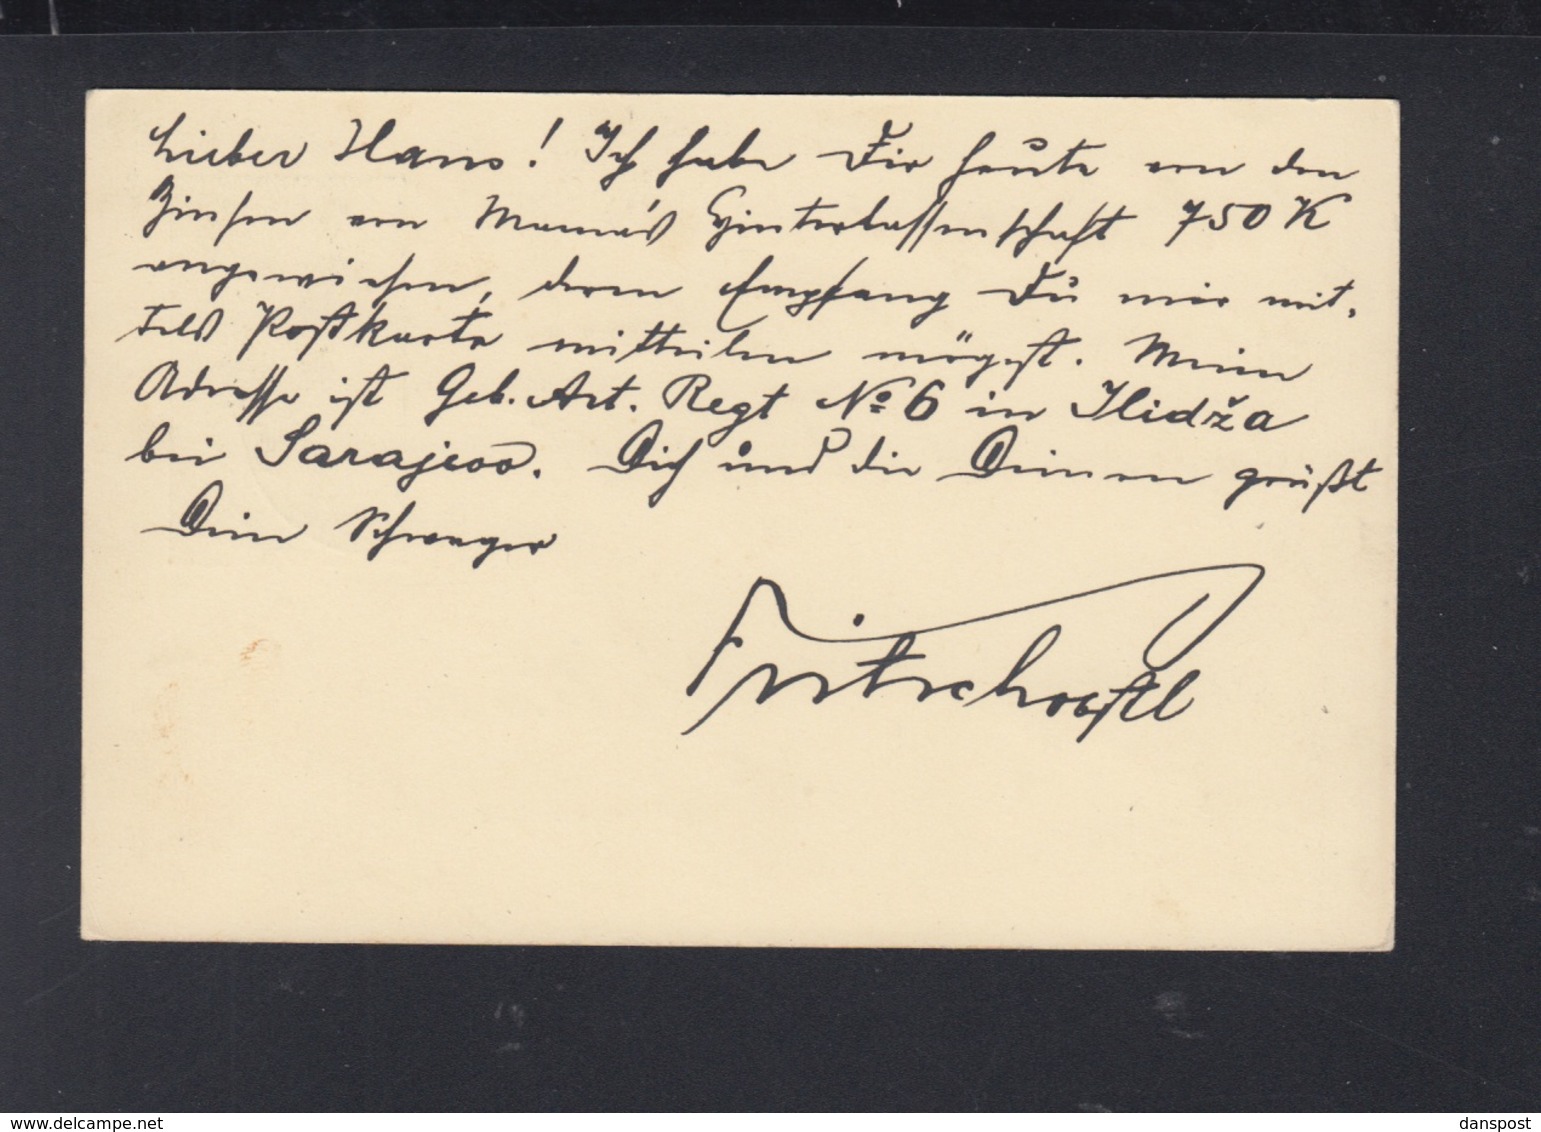 Lieber Hans! Ich habe Dir heute von den
Zinsen von Mama's Hinterlassenschaft 750 K
angewiesen, deren Empfang Du mir mit-
tels Postkarte mitteilen mögest. Meine
Adresse ist Geb. Art. Regt No 6 in Ilidža
bei Sarajevo. Dich und die Deinen grüßt
Dein Schwager
www.delcampe.net
danspost